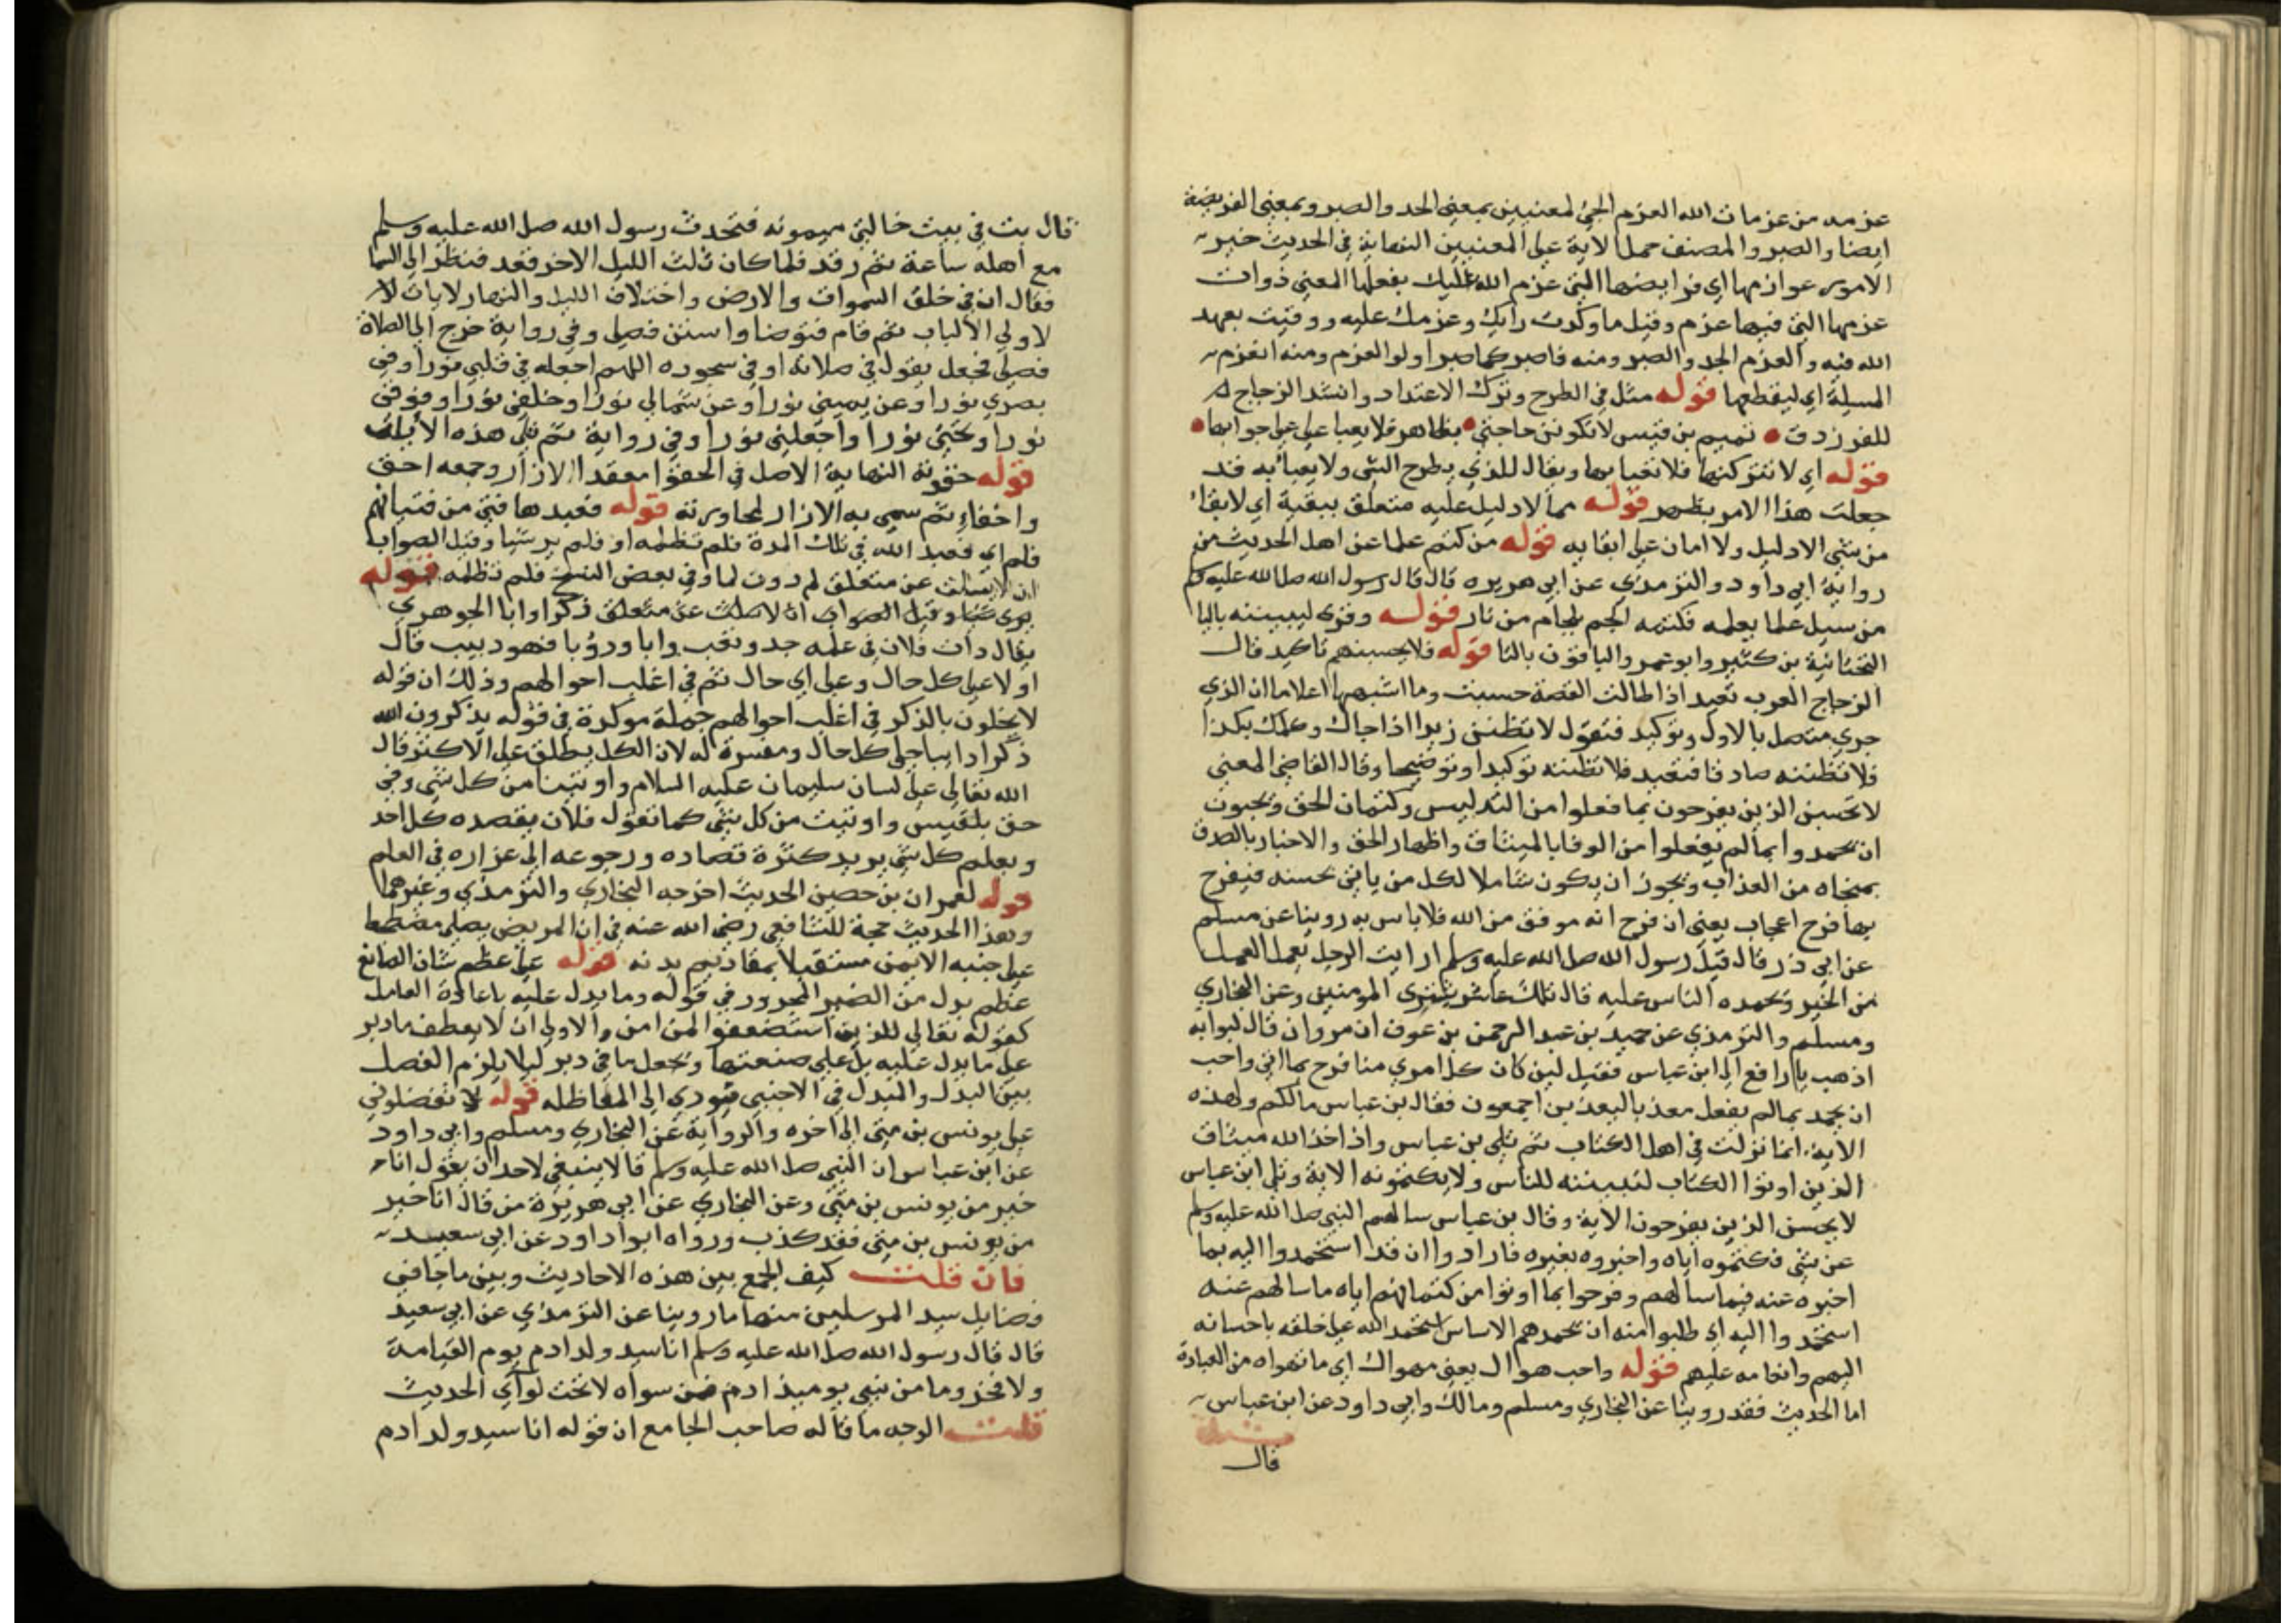 عزمه من عزمات الله العزم الجئ لمعنيين بمعنى الجد والصبر وبمعنى الفريضة
ايضا والصبر والمصنف حمل الاية على المعنيين النهاية في الحديث خير
الامور عوازمها اي فرايضها التي عزم الله عليك بفعلها المعني ذوات
عزمها التي فيها عزم وقيل ما وكدت رايك وعزمك عليه ووفيت بعهد
الله فيه والعزم الجد والصبر ومنه فاصبر كما صبر اولو العزم ومنه اعزم
المسلة اي ليقطعها قوله مثل في الطرح وترك الاعتداد وانشد الزجاج
للفرزدق تميم بن قيس لا تكونن حاجتي بظهر فلا يعيا علي جوابها
قوله اي لا تتركنها فلا تعبا بها ويقال للذي يطرح الشي ولا يعبا به قد
جعلت هذا الامر بظهر قوله مما لا دليل عليه متعلق ببقية اي لا بقا
من شي الا دليل ولا امان على ابقا به قوله من كتم علما عن اهل الحديث من
رواية ابي داود والترمذي عن ابي هريره قال قال رسول الله صل الله عليه وسلم
من سيل علما يعلمه فكتمه الجم بلجام من نار قوله وقرى ليبيننه باليا
التحتانية بن كثير وابو عمرو والباقون بالتا قوله فلا يحسبنهم تاكيد قال
الزجاج العرب تعيد اذا طالت القصة حسبت وما اشبهها اعلاما ان الذي
جري متصل بالاول وتوكيد فتقول لا تظنن زيدا اذا جاك وكلمك بكذا
فلا تظننه صادقا فتعيد فلا تظننه توكيدا وتوضيحا وقال القاضي المعني
لا تحسبن الذين يفرحون بما فعلوا من التدليس وكتمان الحق ويحبون
ان يحمدوا بما لم يفعلوا من الوفا بالميثاق واظهار الحق والاخبار بالصدق
بمنجاه من العذاب ويجوز ان يكون شاملا لكل من ياتي بحسنه فيفرح
بها فرح اعجاب يعني ان فرح انه موفق من الله فلا باس به روينا عن مسلم
عن ابي ذر قال قيل رسول الله صل الله عليه وسلم ارايت الرجل يعمل العمل
من الخير ويحمده الناس عليه قال تلك عاجل بشرى المومنين وعن البخاري
ومسلم والترمذي عن حميد بن عبد الرحمن بن عوف ان مروان قال لبوابه
اذهب يا رافع الى ابن عباس فقيل لين كان كل امري منا فرح بما اتي واحب
ان يحمد بما لم يفعل معذبا ليعذبن اجمعون فقال بن عباس ما لكم ولهذه
الاية انما نزلت في اهل الكتاب ثم تلي بن عباس واذ اخذ الله ميثاق
الذين اوتوا الكتاب لتبيننه للناس ولا يكتمونه الاية وتلي ابن عباس
لا يحسبن الذين يفرحون الاية وقال بن عباس سالهم النبي صل الله عليه وسلم
عن شي فكتموه اياه واخبروه بغيره فاراد وا ان قد استحمدوا اليه بما
اخبروه عنه فيما سالهم وفرحوا بما اوتوا من كتمانهم اياه ما سالهم عنه
استحمدوا اليه اي طلبوا منه ان يحمدهم الاساس استحمد الله على خلقه باحسانه
اليهم وانعامه عليهم قوله واحب هوال يعني مهواك اي ما تهواه من العبادة
اما الحديث فقد روينا عن البخاري ومسلم ومالك وابي داود عن ابن عباس
قال
قال بت في بيت خالتي ميمونه فتحدث رسول الله صل الله عليه وسلم
مع اهله ساعة ثم رقد فلما كان ثلث الليل الاخر قعد فنظر الى السما
فقال ان في خلق السموات والارض واختلاف الليل والنهار لايات لا
لاولي الالباب ثم قام فتوضا واستنن فصلى وفي رواية خرج الى الصلاة
فصلى فجعل يقول في صلاته او في سجوده اللهم اجعله في قلبي نورا وفي
بصري نورا وعن يميني نورا وعن شمالي نورا وخلفي نورا وفوقي
نورا وتحتي نورا واجعلني نورا وفي رواية ثم تلى هذه الايات
قوله حقوته النهاية الاصل في الحقوا معقد الازار وجمعه احق
واحقاء ثم سمي به الازار لمجاورته قوله فعبدها فتي من فتيانهم
فلم اي فعبد الله في تلك المدة فلم تظلمه او فلم ير شيا وقيل الصواب
ان لا يسالت عن متعلق لم دون لما وفي بعض النسخ فلم تظلمه قوله
يرى شيا وقيل الصواب ان لا صلت عن متعلق ذكرا وابا الجوهري
يقال داب فلان في عمله جد وتعب دابا ودؤبا فهو دييب قال
اولا على كل حال وعلى اي حال ثم في اغلب احوالهم وذلك ان قوله
لا يخلون بالذكر في اغلب احوالهم جملة موكدة في قوله يذكرون الله
ذكرا دايبا على كل حال ومفسرة له لان الكل يطلق على الاكثر قال
الله تعالى على لسان سليمان عليه السلام واوتينا من كل شي وفي
حق بلقيس واوتيت من كل شي كما تقول فلان يقصده كل احد
ويعلم كل شي يريد كثرة قصاده ورجوعه الى غزاره في العلم
قوله لعمران بن حصين الحديث اخرجه البخاري والترمذي وغيرهما
وهذا الحديث حجة للشافعي رضي الله عنه في ان المريض يصلي مضطجعا
على جنبه الايمن مستقبلا بمقاديم بدنه قوله على عظم شان الصانع
عظم بدل من الضمير المجرور في قوله وما يدل عليه باعادة العامل
كقوله تعالى للذين استضعفوا لمن امن والاولى ان لا يعطف ما دبر
على ما يدل عليه بل على صنعتها ويجعل ما في دبر ليلا يلزم الفصل
بين البدل والمبدل في الاجنبي فيودي الى المعاظله قوله لا تفضلوني
على يونس بن متى الى اخره والرواية عن البخاري ومسلم وابي داود
عن ابن عباس ان النبي صل الله عليه وسلم قال لا ينبغي لاحد ان يقول انا
خير من يونس بن متى وعن البخاري عن ابي هريرة من قال انا خير
من يونس بن متى فقد كذب ورواه ابو اداود عن ابي سعيد
فان قلت كيف الجمع بين هذه الاحاديث وبين ما جا في
فضايل سيد المرسلين منها ما روينا عن الترمذي عن ابي سعيد
قال قال رسول الله صل الله عليه وسلم انا سيد ولد ادم يوم القيامة
ولا فخر وما من نبي يوميذ ادم فمن سواه الا تحت لوآي الحديث
قلت الوجه ما قاله صاحب الجامع ان قوله انا سيد ولد ادم